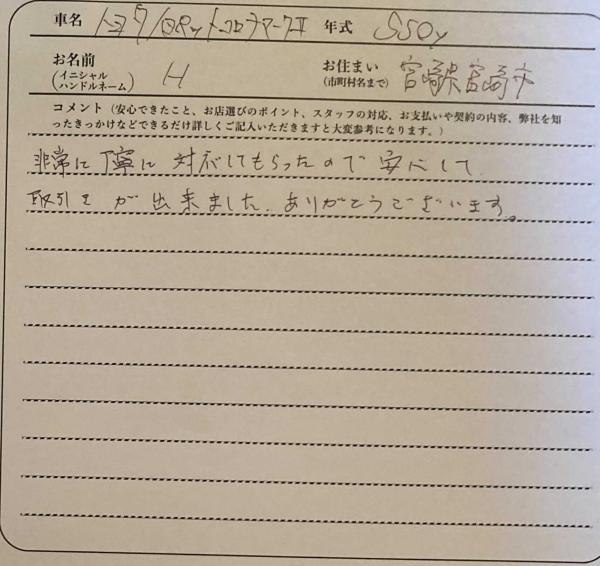 車名 トヨタ/コロナマークII 年式 S50y
お名前
(イニシャル
ハンドルネーム) H
お住まい
(市町村名まで) 宮崎県宮崎市
コメント(安心できたこと、お店選びのポイント、スタッフの対応、お支払いや契約の内容、弊社を知
ったきっかけなどできるだけ詳しくご記入いただきますと大変参考になります。)
非常に丁寧に対応してもらったので安心して
取引きが出来ました。ありがとうございます。